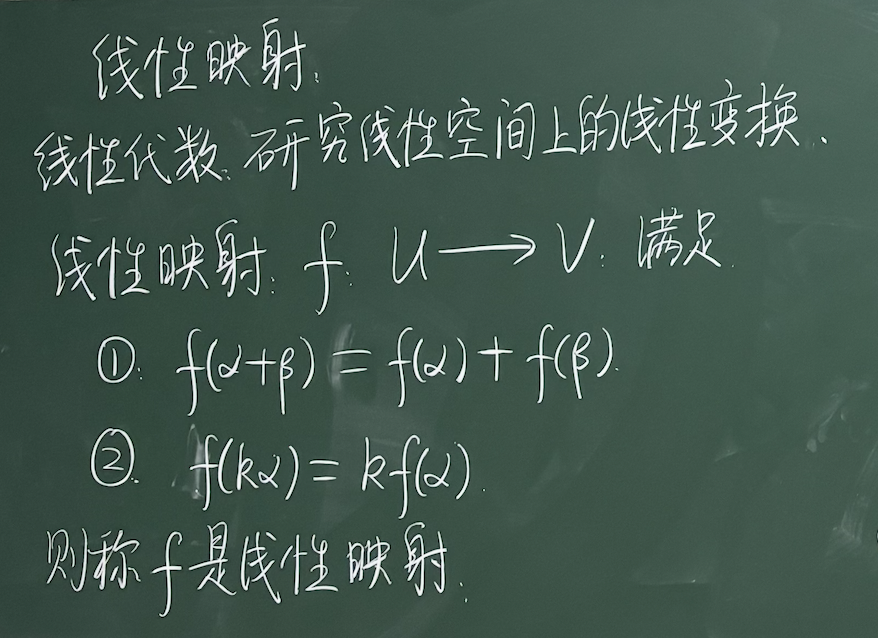 线性映射.
线性代数. 研究线性空间上的线性变换.
线性映射: f: U → V: 满足.
①. f(α+β) = f(α) + f(β).
②. f(kα) = kf(α).
则称f是线性映射.